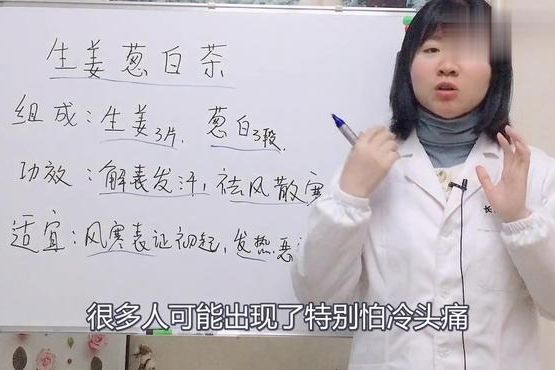 生姜葱白茶
组成：生姜3片，葱白3段，
功效：解表发汗，祛风散寒
适宜：风寒表证初起，发热恶
长
很多人可能出现了特别怕冷头痛